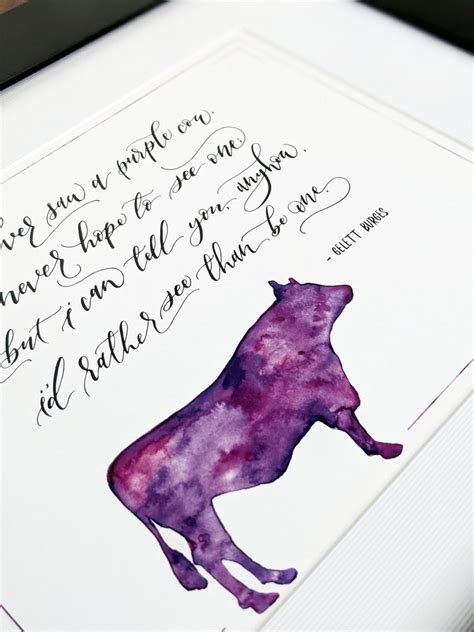 ver saw a purple cow.
never hope to see one
but i can tell you, anyhow.
i'd rather see than be one.
- GELETT BURGES